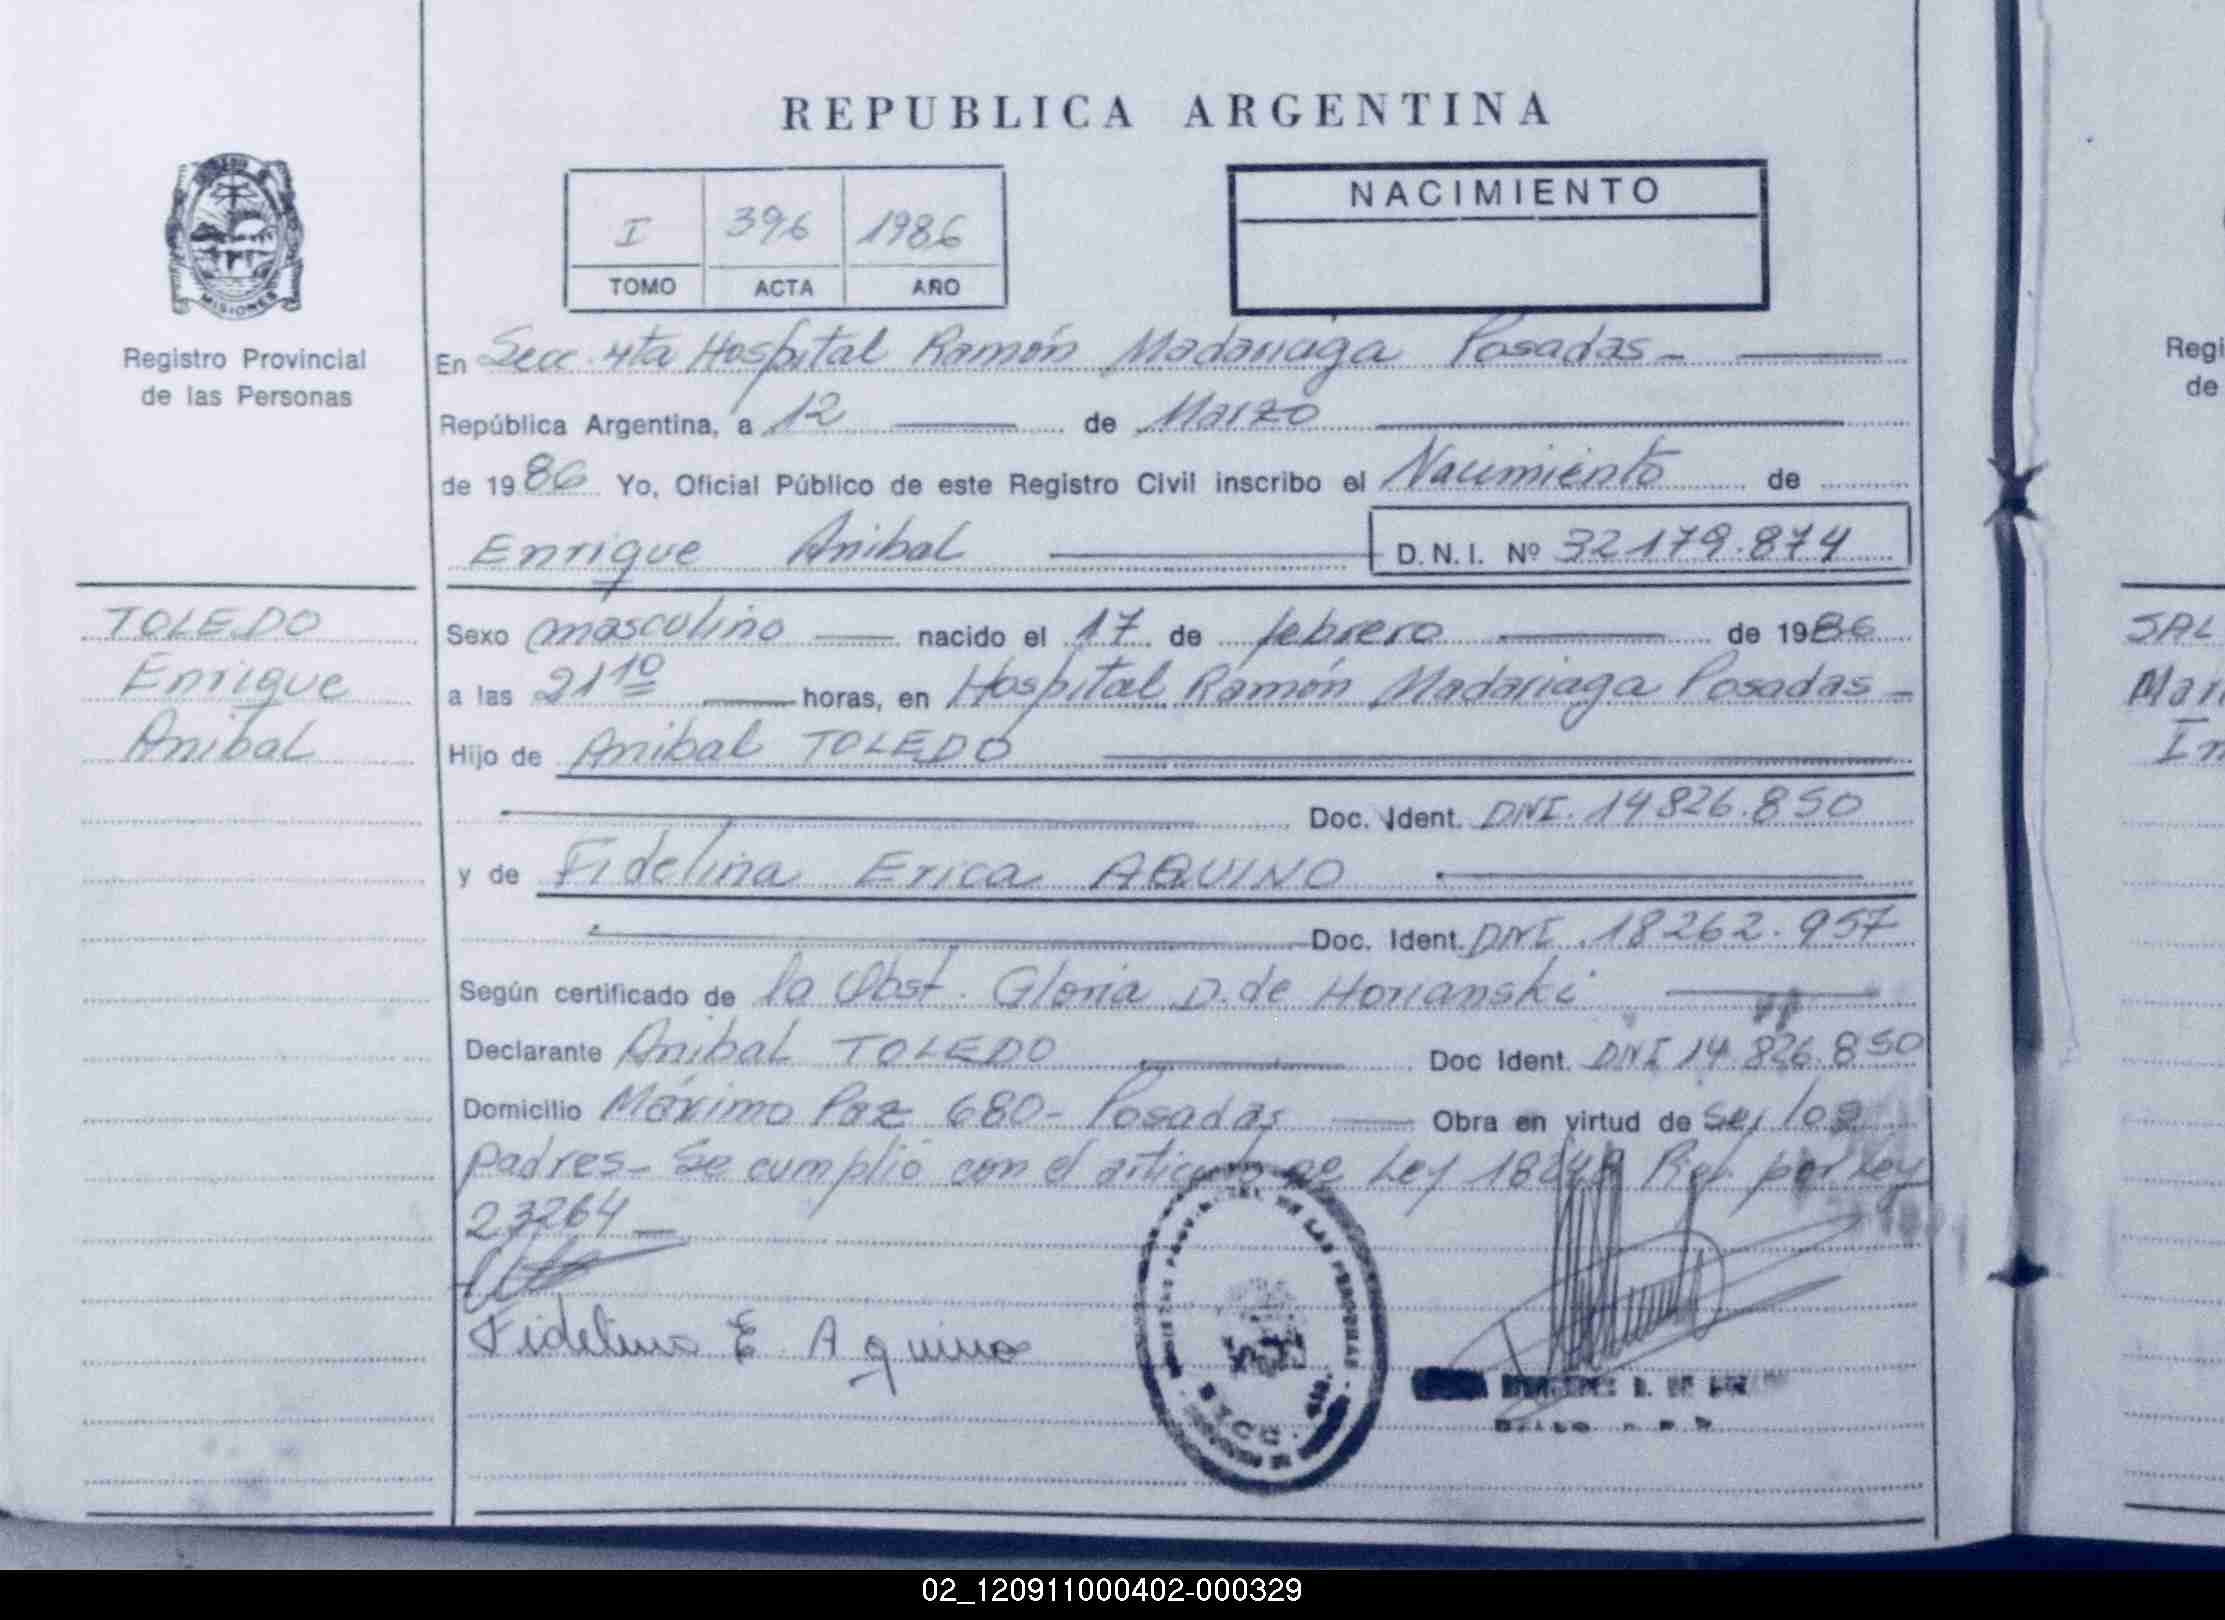 REPUBLICA ARGENTINA
I 396 1986
TOMO ACTA AÑO
NACIMIENTO
MISIONES
Registro Provincial
de las Personas
En Secc. 4ta Hospital Ramón Madariaga Posadas -
República Argentina, a 12 de Marzo
de 1986 Yo, Oficial Público de este Registro Civil inscribo el Nacimiento de
Enrique Anibal D.N.I. Nº 32179.874
TOLEDO
Enrique
Anibal
Sexo masculino nacido el 17 de febrero de 1986
a las 21 10 horas, en Hospital Ramón Madariaga Posadas -
Hijo de Anibal TOLEDO
Doc. Ident. DNI. 14826.850
y de Fidelina Erica AQUINO
Doc. Ident. DNI. 18262.957
Según certificado de la Obst. Gloria D. de Horianski
Declarante Anibal TOLEDO Doc Ident. DNI 14.826.850
Domicilio Máximo Paz 680 - Posadas Obra en virtud de ser los
padres - Se cumplió con el Ley por Ley
23264
Fidelina E. Aquino
DE LAS PERSONAS
Regi
de
SAL
Mari
In
02_120911000402-000329